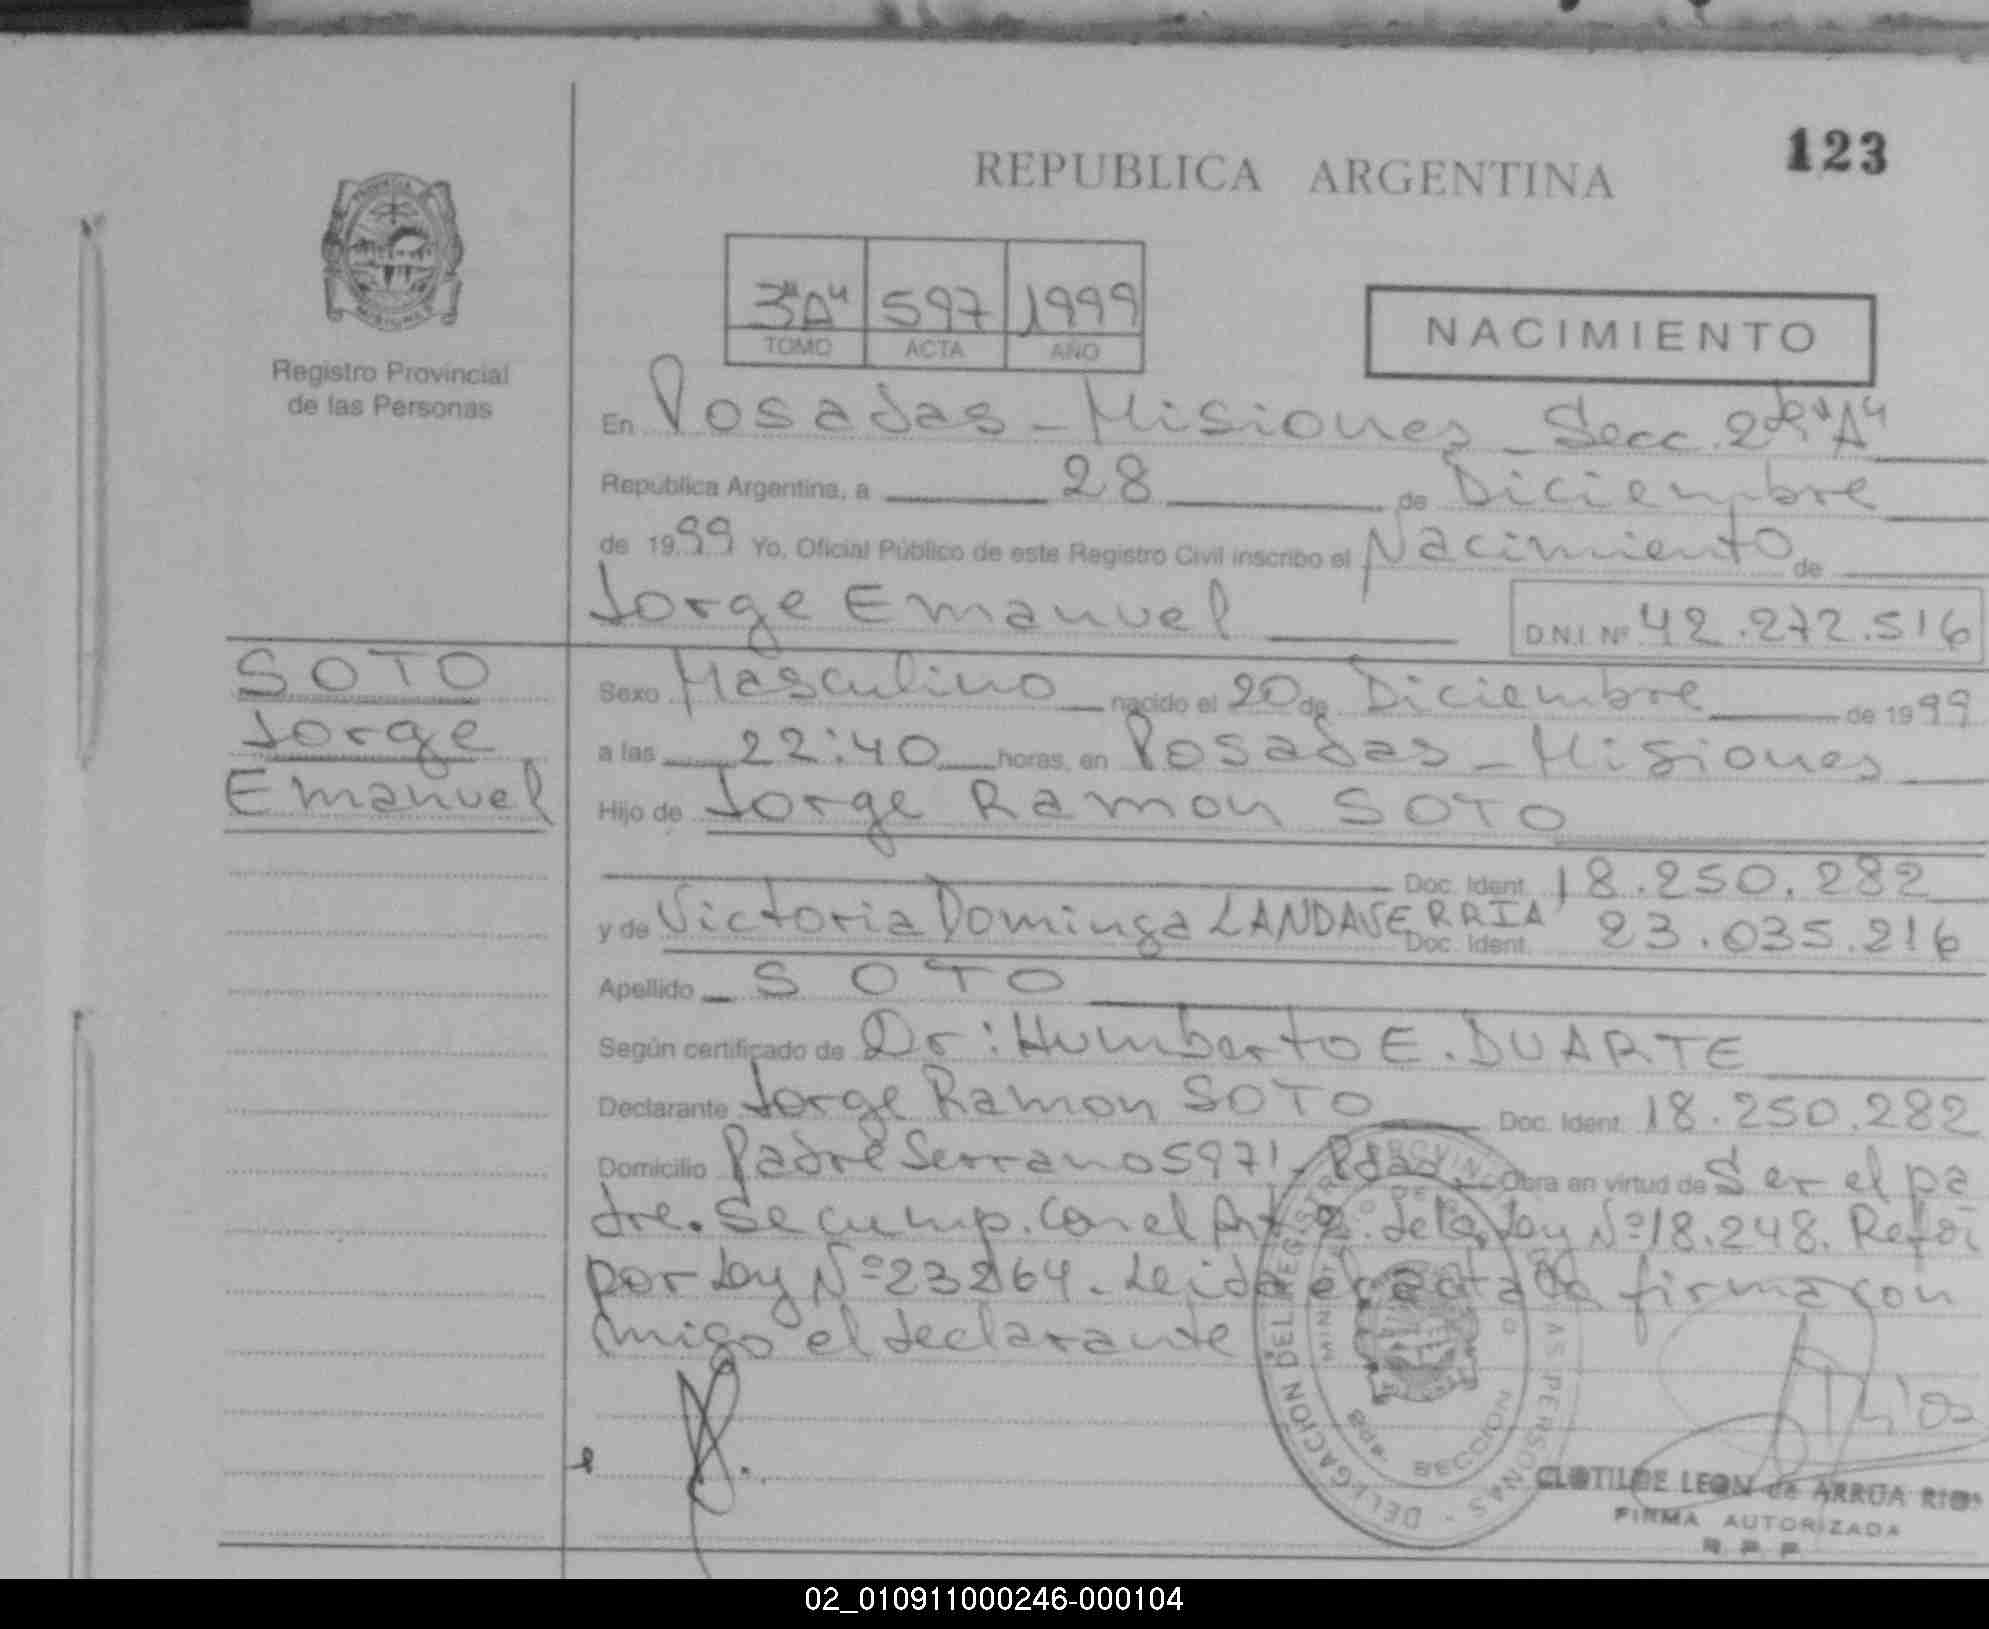 123
REPUBLICA ARGENTINA
3ª"A" 597 1999
TOMO ACTA AÑO
NACIMIENTO
Registro Provincial
de las Personas
En Posadas - Misiones - Secc. 2da "A"
República Argentina, a 28 de Diciembre
de 1999 Yo, Oficial Público de este Registro Civil inscribo el Nacimiento de
Jorge Emanuel D.N.I. Nº 42.272.516
SOTO
Jorge
Emanuel
Sexo Masculino nacido el 20 de Diciembre de 1999
a las 22:40 horas, en Posadas - Misiones
Hijo de Jorge Ramon SOTO
Doc. Ident. 18.250.282
y de Victoria Dominga LANDAVERRIA Doc. Ident. 23.035.216
Apellido SOTO
Según certificado de Dr: Humberto E. DUARTE
Declarante Jorge Ramon SOTO Doc. Ident. 18.250.282
Domicilio Padre Serrano 5971 - Pdas Obra en virtud de Ser el pa
dre. Se cump. con el Art 2. de la Ley Nº 18.248. Refor
por Ley Nº 23264. Leida el acta la firma con
migo el declarante
DELEGACION DEL REGISTRO PROVINC AS PERSONAS
SECCION
CLOTILDE LEON de ARRUA RIOS
FIRMA AUTORIZADA
R. P. P.
02_010911000246-000104